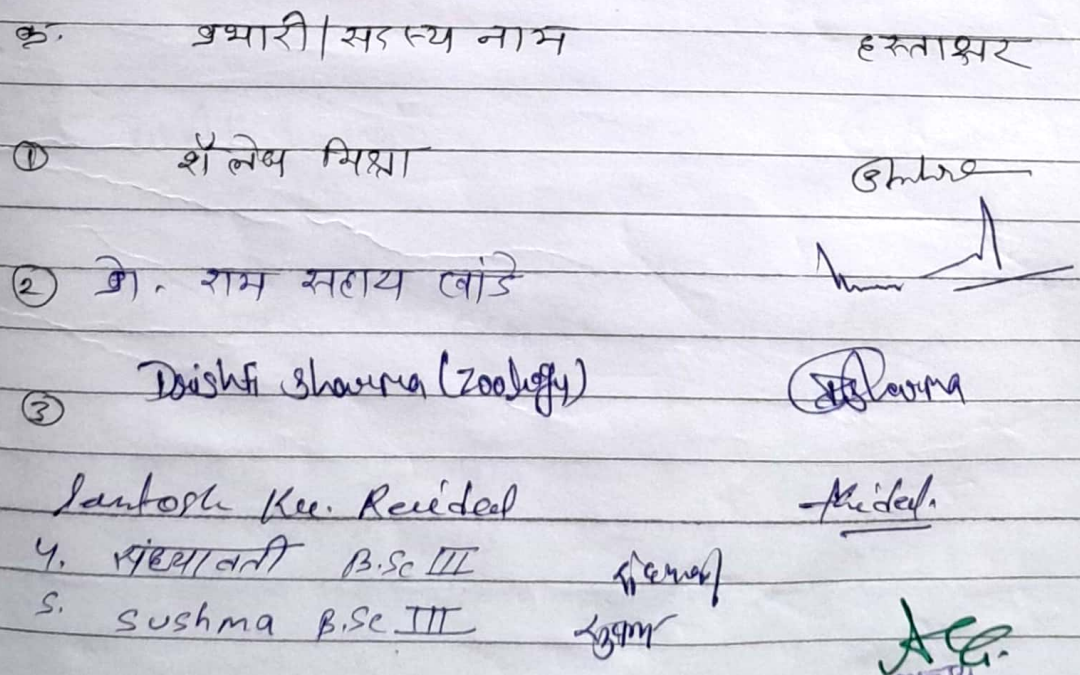 क्र. प्रभारी/सदस्य नाम हस्ताक्षर
① शैलेष मिश्रा
② प्रो. राम सहाय खांडे
③ Drishti Sharma (Zoology) Sharma
Santosh Ku.
4. संध्यावती B.Sc III
5. Sushma B.Sc III